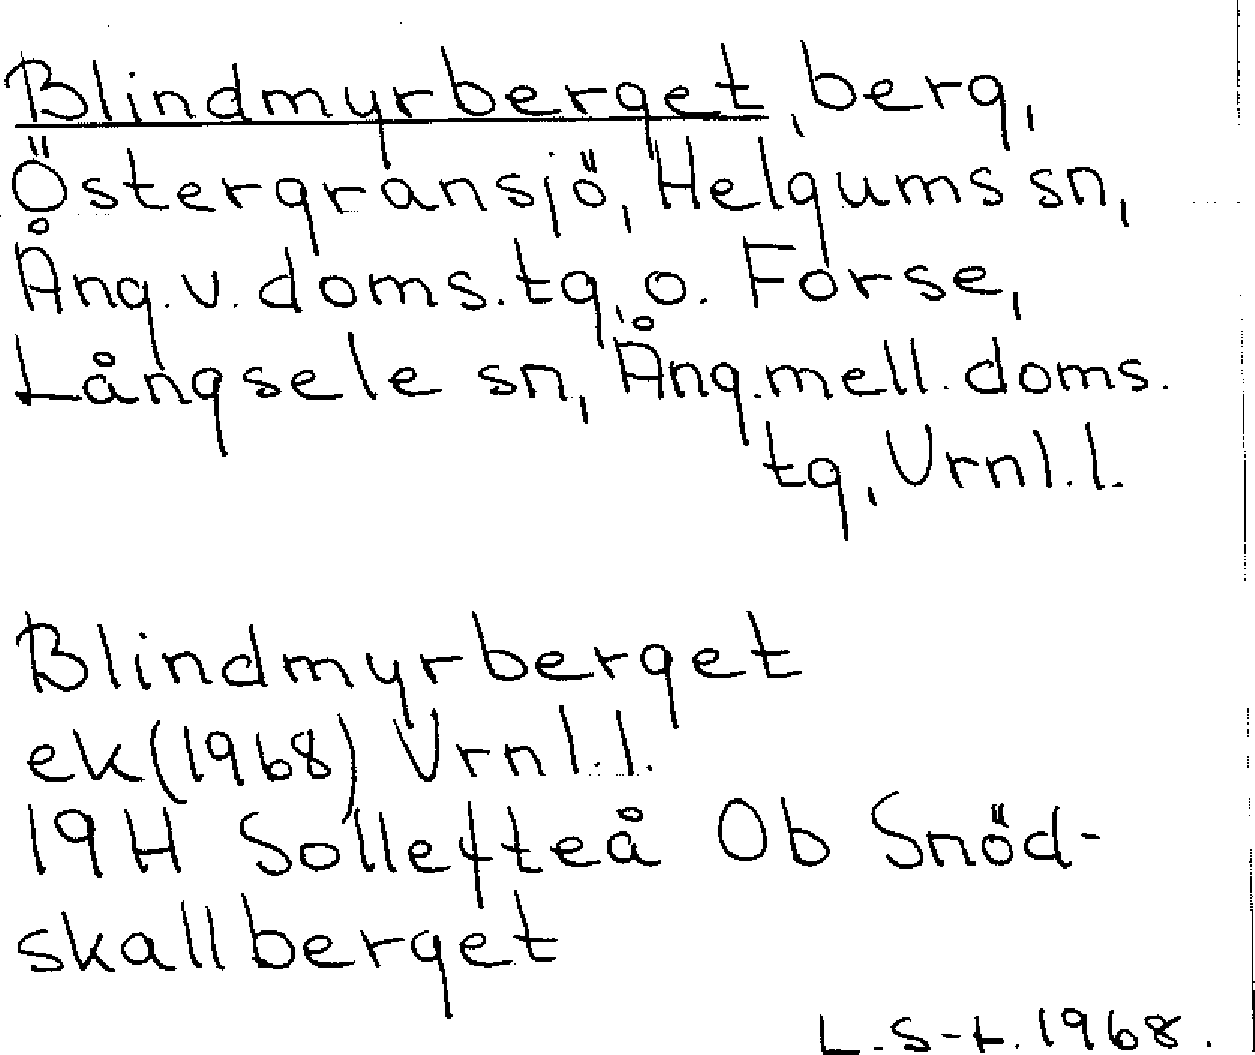 Blindmyrberget, berg,
Östergransjö, Helgums sn,
Ång.v. doms.tg, o. Forse,
Långsele sn, Ång.mell. doms.
tg, Vrnl.l.
Blindmyrberget
ek(1968) Vrnl.l.
19H Sollefteå 0b Snöd-
skallberget
L. S-t. 1968.